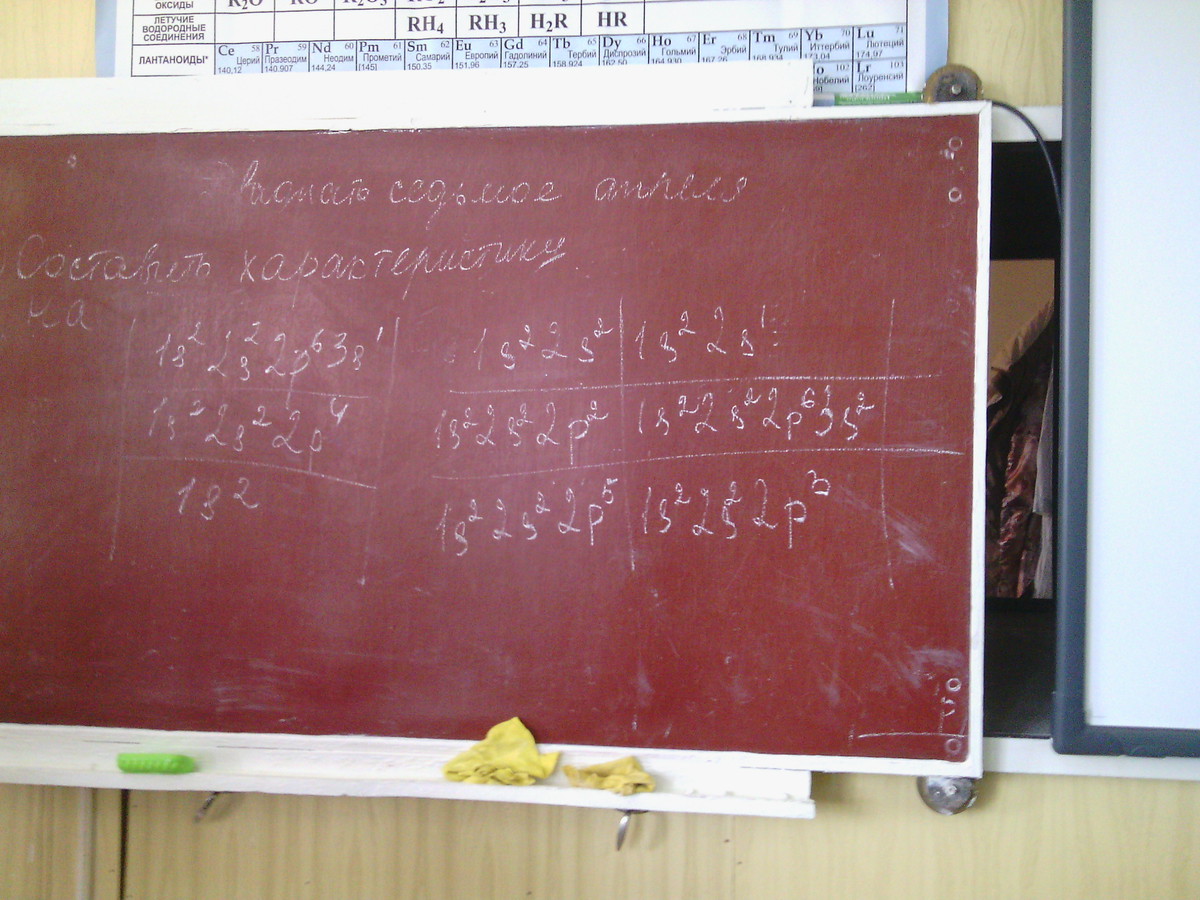 ОКСИДЫ R₂O RO R₂O₃
ЛЕТУЧИЕ ВОДОРОДНЫЕ СОЕДИНЕНИЯ RH₄ RH₃ H₂R HR
ЛАНТАНОИДЫ* Ce 58 Церий 140,12 Pr 59 Празеодим 140,907 Nd 60 Неодим 144,24 Pm 61 Прометий [145] Sm 62 Самарий 150,35 Eu 63 Европий 151,96 Gd 64 Гадолиний 157,25 Tb 65 Тербий 158,924 Dy 66 Диспрозий 162,50 Ho 67 Гольмий 164,930 Er 68 Эрбий 167,26 Tm 69 Тулий 168,934 Yb 70 Иттербий 173,04 Lu 71 Лютеций 174,97
102 Нобелий Lr 103 Лоуренсий [262]
седьмое апреля
Составить характеристику
на
1s² 2s² 2p⁶ 3s¹ 1s² 2s² 1s² 2s¹
1s² 2s² 2p⁴ 1s² 2s² 2p² 1s² 2s² 2p⁶ 3s²
1s² 1s² 2s² 2p⁵ 1s² 2s² 2p³